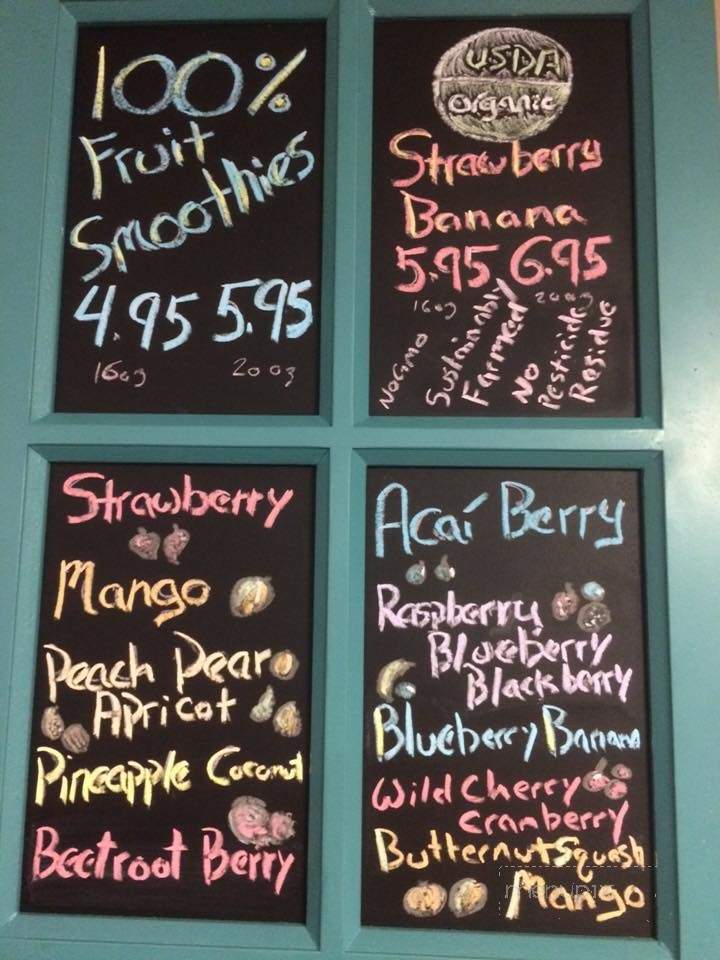 100%
Fruit
Smoothies
4.95 5.95
16oz 20oz
USDA
Organic
Strawberry
Banana
5.95 6.95
16oz 20oz
No GMO
Sustainably
Farmed
No
Pesticide
Residue
Strawberry
Mango
Peach Pear
Apricot
Pineapple Coconut
Beetroot Berry
Acaí Berry
Raspberry
Blueberry
Blackberry
Blueberry Banana
Wild Cherry
Cranberry
Butternut Squash
Mango
menupix